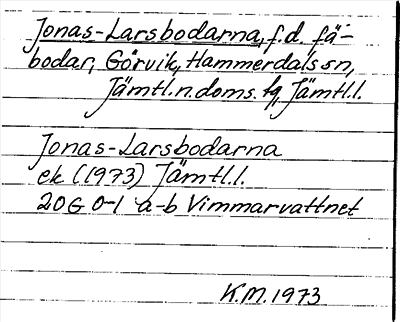 Jonas-Larsbodarna, f.d. fä-
bodar, Görvik, Hammerdals sn,
Jämtl. n. doms. tg, Jämtl. l.
Jonas-Larsbodarna
ek (1973) Jämtl. l.
20G 0-1 a-b Vimmarvattnet
K.M. 1973